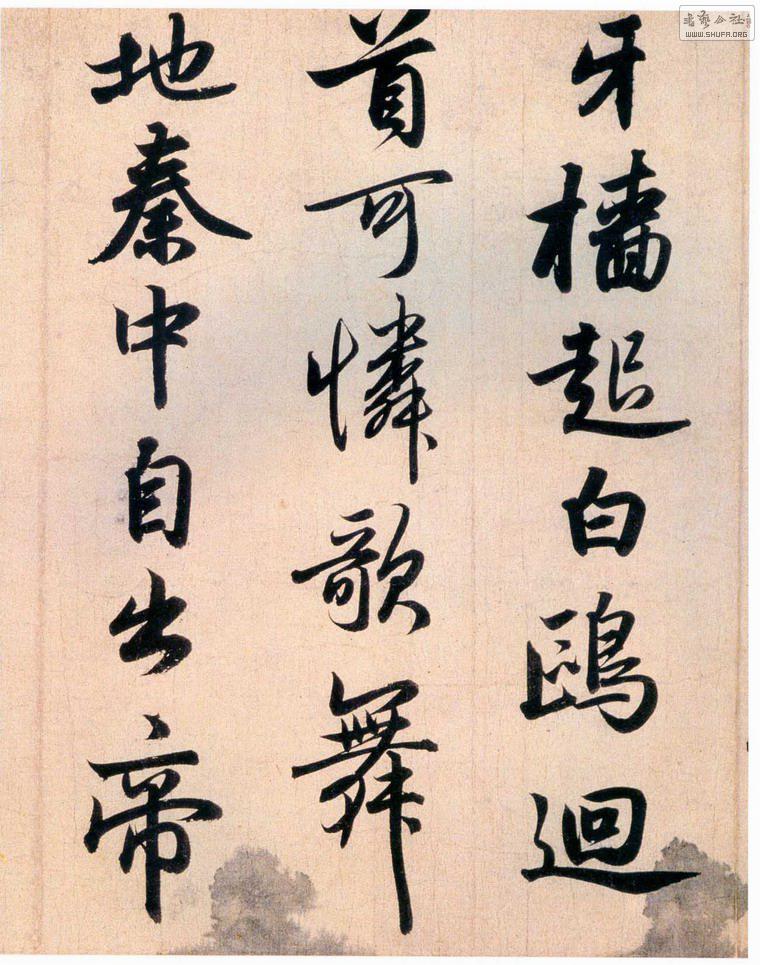 牙檣起白鷗迴
首可憐歌舞
地秦中自出帝
書藝公社
WWW.SHUFA.ORG